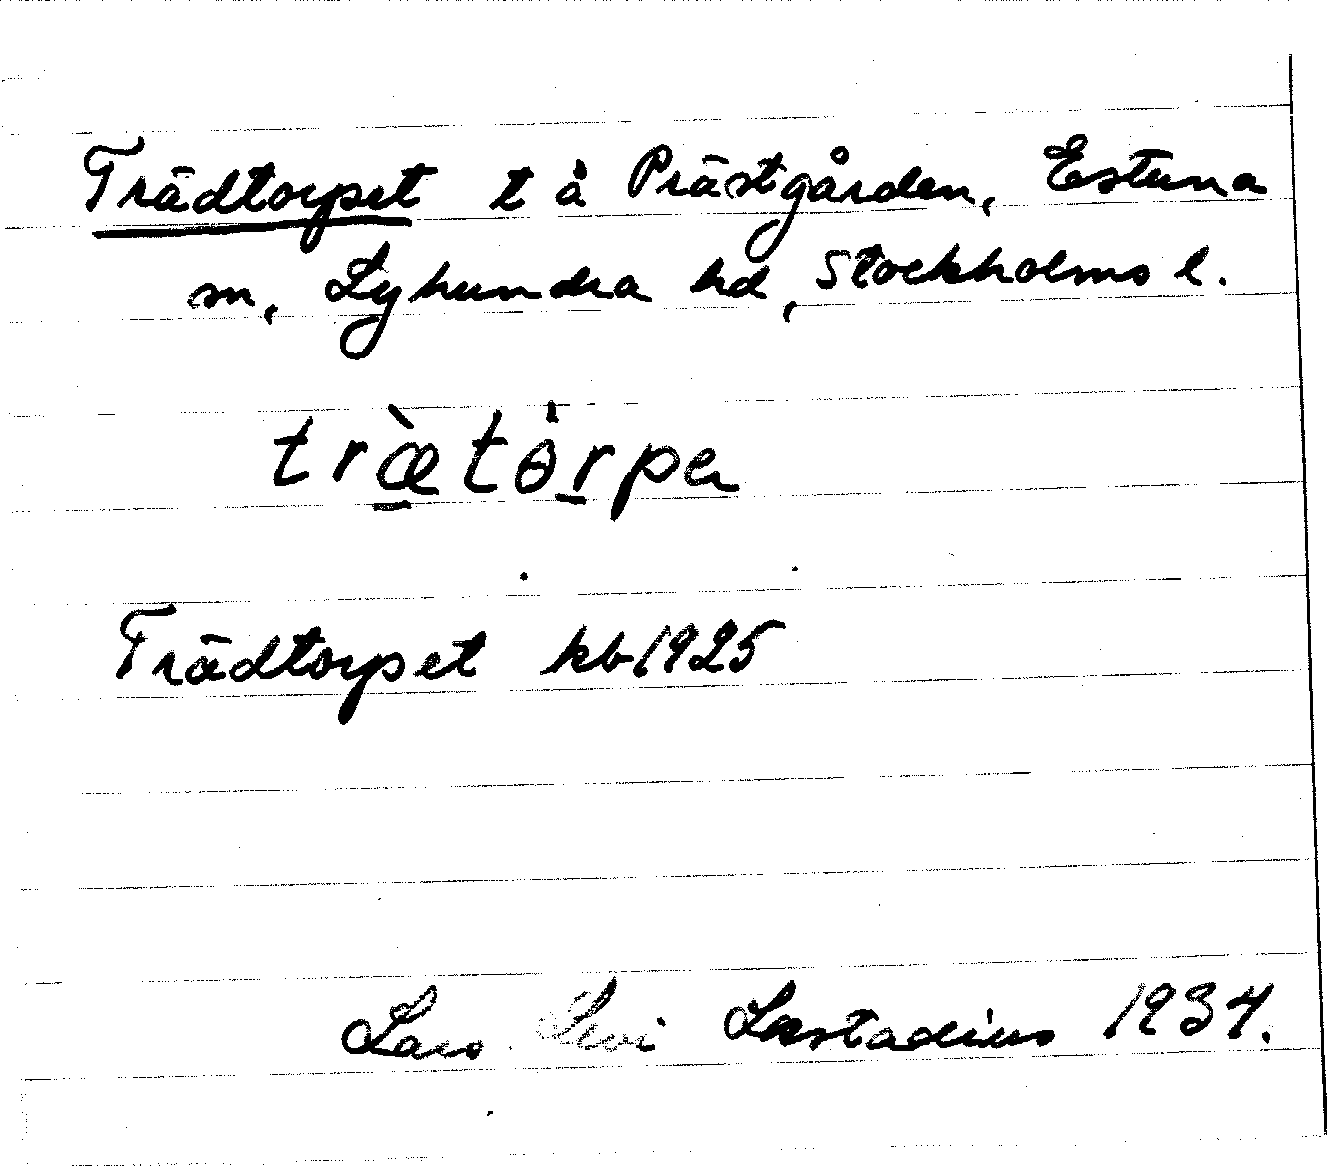 Trädtorpet t å Prästgården, Estuna
sn, Lyhundra hd, Stockholms l.
træ̀tɵ̀rpa
Trädtorpet kb 1925
Lars Levi Læstadius 1934.